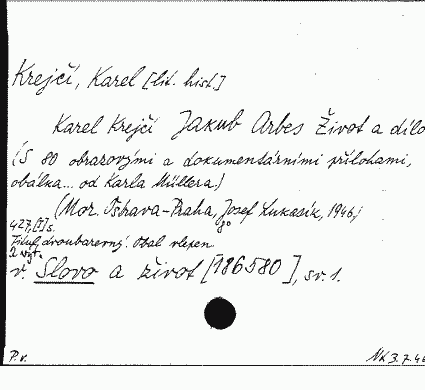 Krejčí, Karel [lit. hist.]
Karel Krejčí Jakub Arbes Život a dílo
(S 80 obrazovými a dokumentárními přílohami,
obálka... od Karla Müllera.)
(Mor. Ostrava-Praha, Josef Lukasík, 1946)
8°
427, [1] s.
Titul dvoubarevný. Obal vlepen
2 výt.
v. Slovo a život [186580], sv. 1.
P. v.